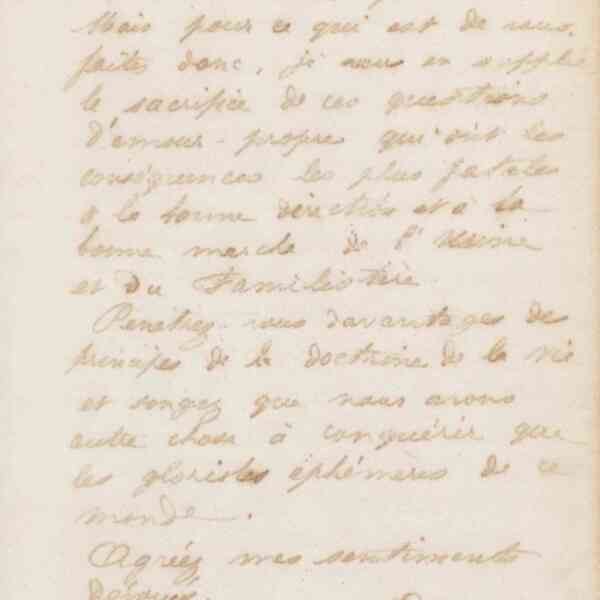 Mais pour ce qui est de vous,
faites donc, je vous en supplie
le sacrifice de ces questions
d'amour-propre qui ont les
conséquences les plus fatales
à la bonne direction et à la
bonne marche de l'Usine
et du Familistère.
Pénétrez-vous davantage des
principes de la doctrine de la vie
et songez que nous avons
autre chose à conquérir que
les glorioles éphémères de ce
monde.
Agréez mes sentiments
dévoués.